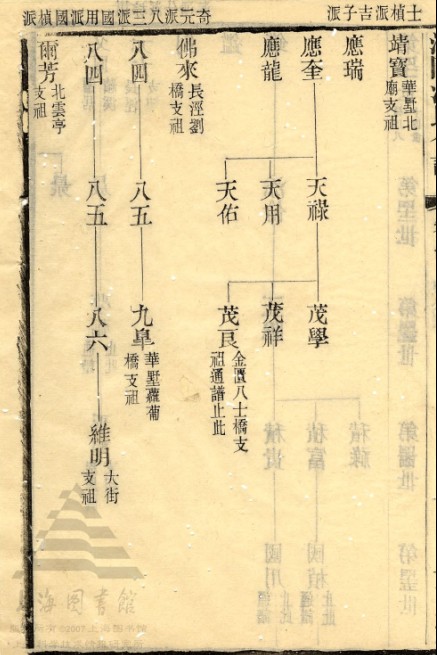 士楨派吉子派
奇元派八三派國用派國楨派
靖寶 華墅北廟支祖
應瑞
應奎 天祿 茂學
應龍 天用 茂祥
天佑 茂良 金匱八士橋支祖通譜止此
佛來 長涇劉橋支祖
八四 八五 九皐 華墅蘿蔔橋支祖
八四 八五 八六 維明 大街支祖
爾芳 北雲亭支祖
上海圖書館